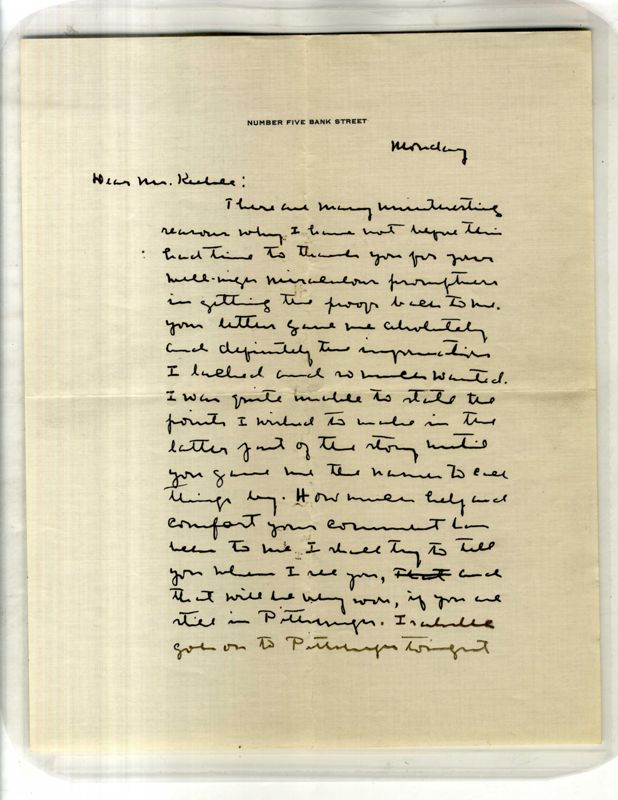 NUMBER FIVE BANK STREET
Monday
Dear Mr.
There are many uninteresting
reasons why I have not before this
had time to thank you for your
well-nigh miraculous promptness
in getting the proofs back to me.
Your letter gave me absolutely
and definitely the information
I lacked and so much wanted.
I was quite unable to state the
points I wished to make in the
latter part of the story until
you gave me the names to call
things by. How much help and
comfort your comment has
been to me I shall try to tell
you when I see you, that and
that will be very soon, if you are
still in Pittsburgh. Isabelle
goes on to Pittsburgh tonight